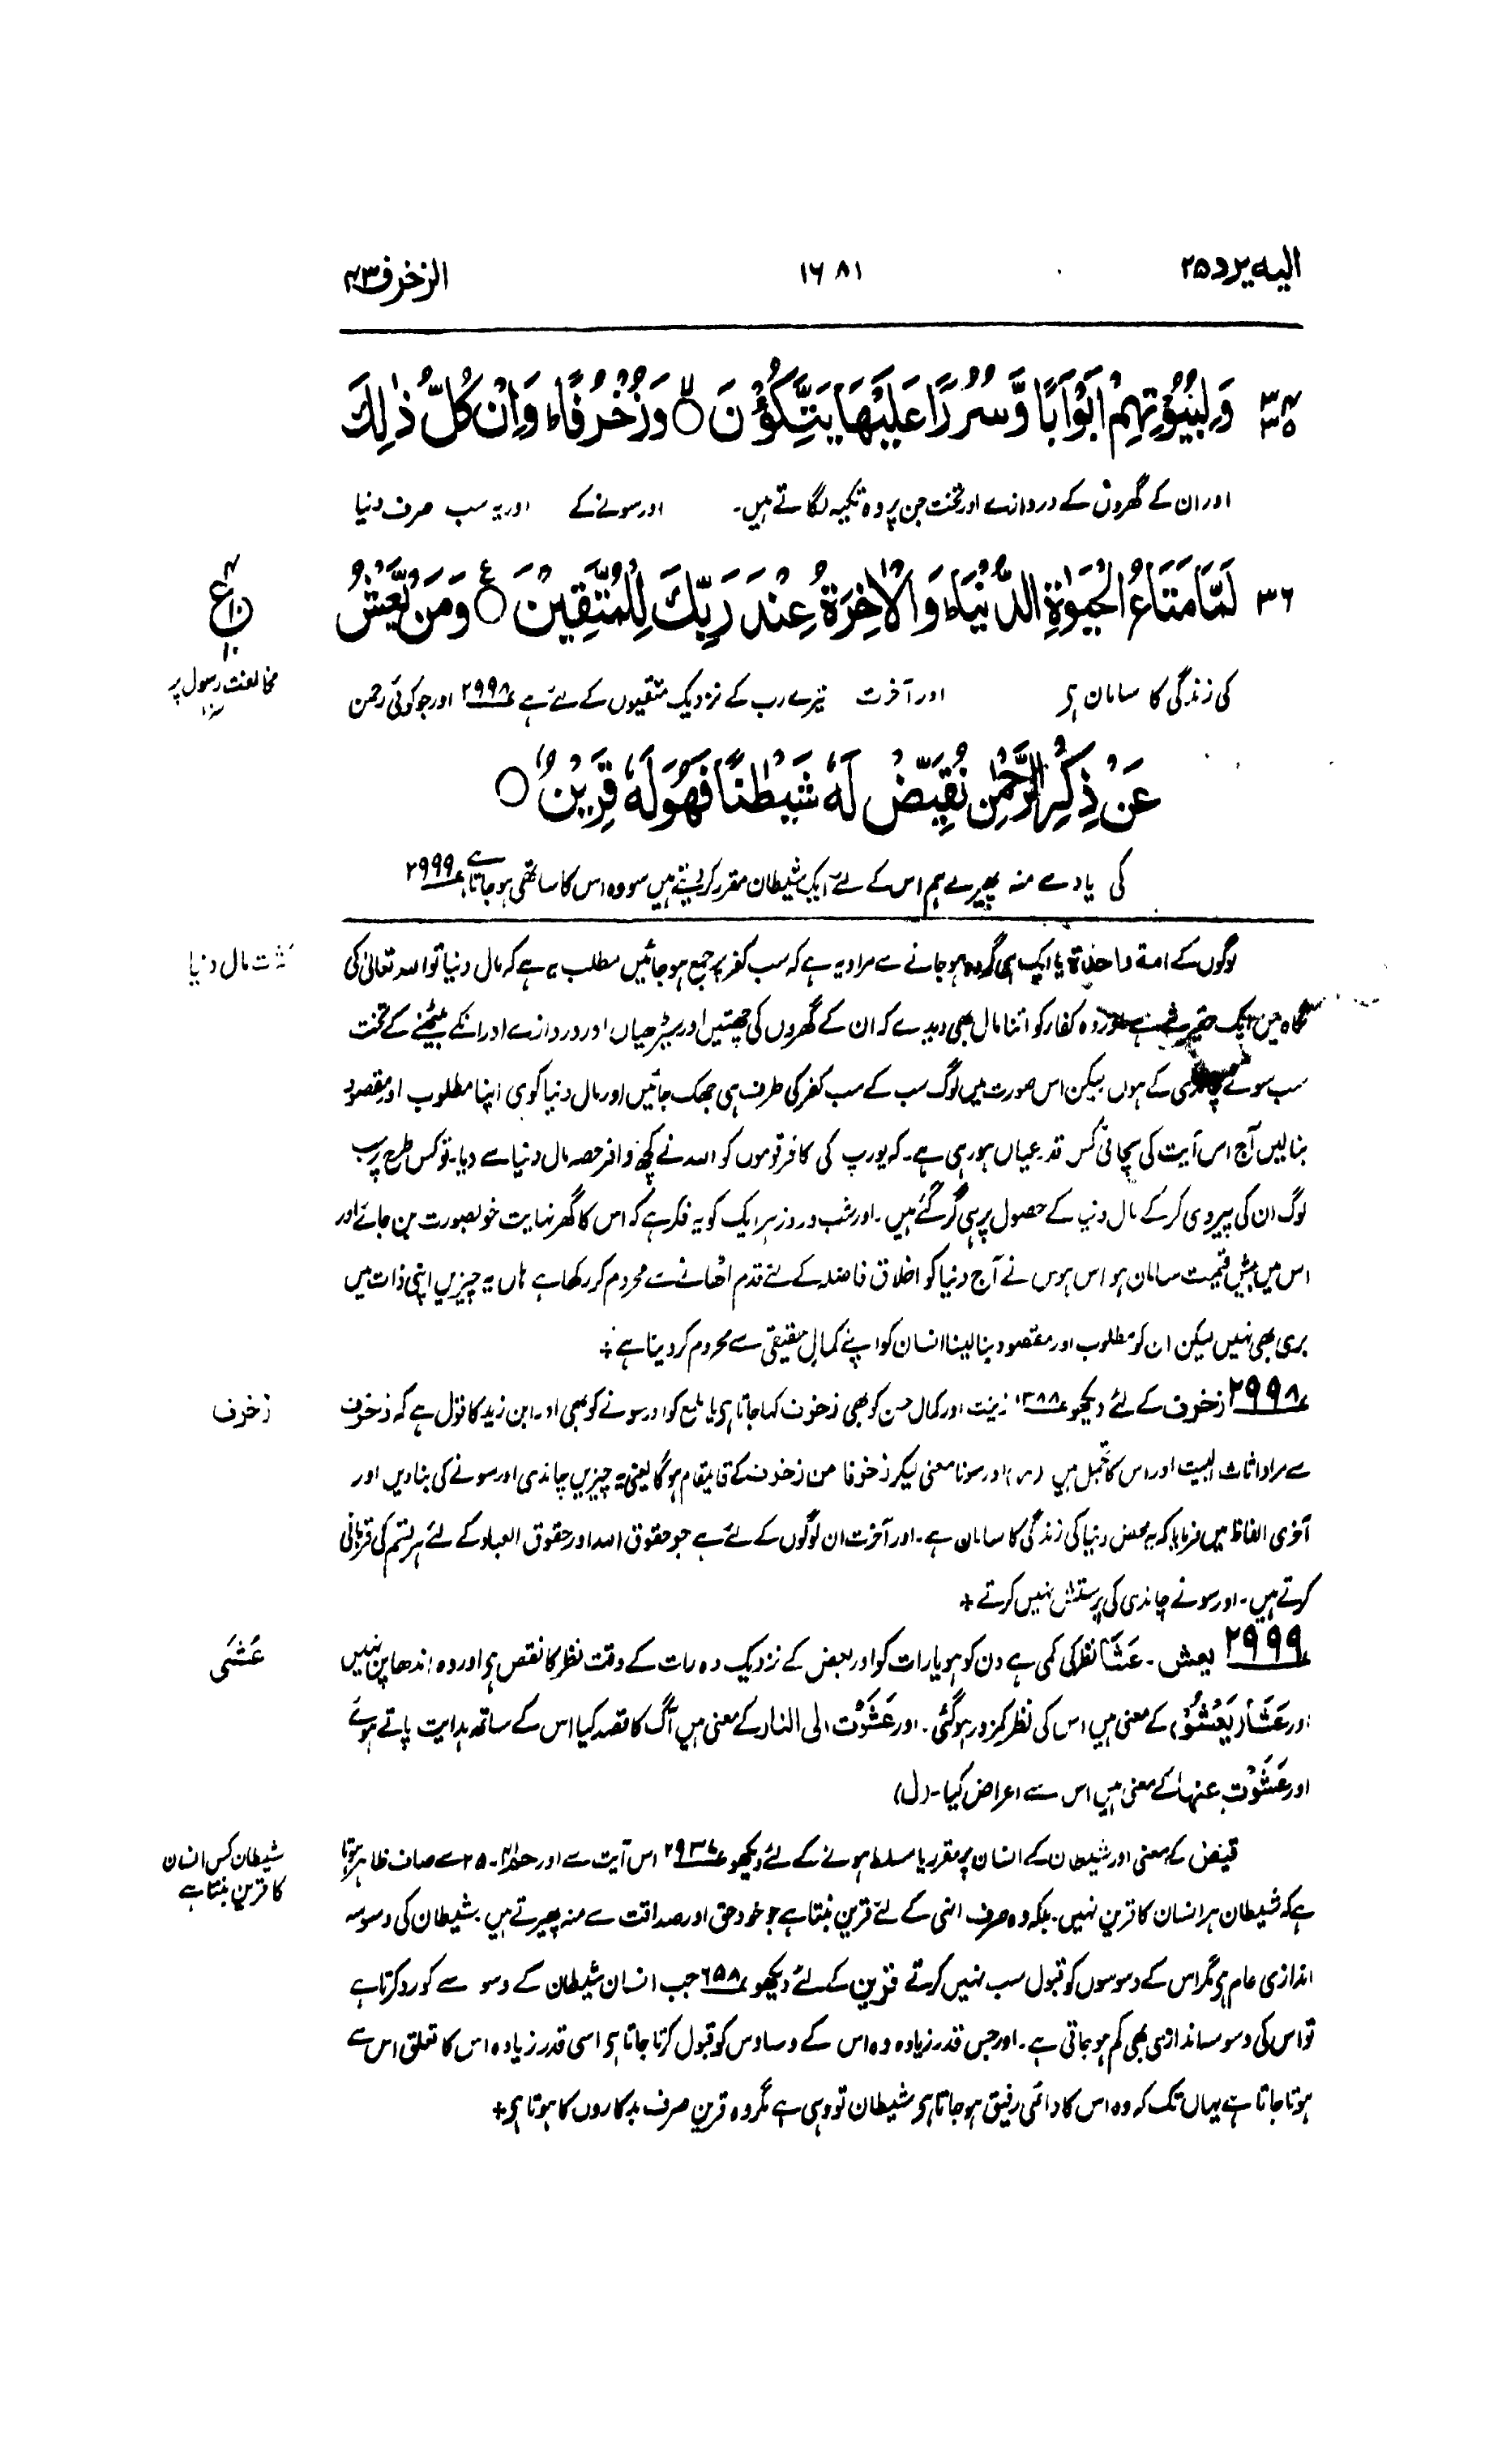 الیه یرد ۲۵
۱۶۸۱
الزخرف ۴۳
۳۴
۳۵
وَلِبُيُوْتِهِمْ اَبْوَابًا وَّسُرُرًا عَلَيْهَا يَتَّكِـُٔوْنَ ۝ وَزُخْرُفًا ؕ وَاِنْ كُلُّ ذٰلِكَ
اور ان کے گھروں کے دروازے اور تخت جن پر وہ تکیہ لگاتے ہیں۔ اور سونے کے اور یہ سب صرف دنیا
۳۶
لَمَّا مَتَاعُ الْحَيٰوةِ الدُّنْيَا ؕ وَالْاٰخِرَةُ عِنْدَ رَبِّكَ لِلْمُتَّقِيْنَ ۝ وَمَنْ يَّعْشُ
ع
مخالفت رسول پر سزا
کی زندگی کا سامان ہے اور آخرت تیرے رب کے نزدیک متقیوں کے لئے ہے ۲۹۹۸ اور جو کوئی رحمٰن
عَنْ ذِكْرِ الرَّحْمٰنِ نُقَيِّضْ لَهٗ شَيْطٰنًا فَهُوَ لَهٗ قَرِيْنٌ ۝
کی یاد سے منہ پھیرے ہم اس کے لئے ایک شیطان مقرر کر دیتے ہیں سو وہ اس کا ساتھی ہو جاتا ہے ۲۹۹۹
کثرت مال دنیا
لوگوں کے امة واحدة یا ایک ہی گروہ ہو جانے سے مراد یہ ہے کہ سب کفر پر جمع ہو جائیں مطلب یہ ہے کہ مال دنیا تو اللہ تعالیٰ کی
نگاہ میں ایک حقیر شے ہے اور وہ کفار کو اتنا مال بھی دیدے کہ ان کے گھروں کی چھتیں اور سیڑھیاں اور دروازے اور انکے بیٹھنے کے تخت
سب سونے چاندی کے ہوں لیکن اس صورت میں لوگ سب کے سب کفر کی طرف ہی جھک جائیں اور مال دنیا کو ہی اپنا مطلوب اور مقصود
بنالیں آج اس آیت کی سچائی کس قدر عیاں ہو رہی ہے۔ کہ یورپ کی کافر قوموں کو اللہ نے کچھ وافر حصہ مال دنیا سے دیا۔ تو کس طرح پر سب
لوگ ان کی پیروی کرکے مال دنیا کے حصول پر ہی گر گئے ہیں۔ اور شب و روز ہر ایک کو یہ فکر ہے کہ اس کا گھر نہایت خوبصورت بن جائے اور
اس میں بیش قیمت سامان ہو اس ہوس نے آج دنیا کو اخلاق فاضلہ کے لئے قدم اٹھانے سے محروم کر رکھا ہے ہاں یہ چیزیں اپنی ذات میں
بری بھی نہیں لیکن ان کو مطلوب اور مقصود بنا لینا انسان کو اپنے کمال حقیقی سے محروم کر دیتا ہے +
زخرف
۲۹۹۸ زخرف کے لئے دیکھو ۱۳۸۸ زینت اور کمال حسن کو بھی زخرف کہا جاتا ہے یا ملمع کو اور سونے کو بھی اور ابن زید کا قول ہے کہ زخرف
سے مراد اثاث البیت اور اس کا تجمل ہیں (ر) اور سونا معنی لیکر زخرفا من زخرف کے قایمقام ہوگا یعنی یہ چیزیں چاندی اور سونے کی بنا دیں اور
آخری الفاظ میں فرمایا کہ یہ محض دنیا کی زندگی کا سامان ہے۔ اور آخرت ان لوگوں کے لئے ہے جو حقوق اللہ اور حقوق العباد کے لئے ہر قسم کی قربانی
کرتے ہیں۔ اور سونے چاندی کی پرستش نہیں کرتے +
عَشَی
۲۹۹۹ یعش۔ عَشَا نظر کی کمی ہے دن کو ہو یا رات کو اور بعض کے نزدیک وہ رات کے وقت نظر کا نقص ہے اور وہ اندھا پن نہیں
اور عَشَا (یَعْشُوْ) کے معنی ہیں اس کی نظر کمزور ہو گئی۔ اور عَشَوْت الی النار کے معنی ہیں آگ کا قصد کیا اس کے ساتھ ہدایت پاتے ہوئے
اور عَشَوْت عنہا کے معنی ہیں اس سے اعراض کیا۔ (ل)
شیطان کس انسان کا قرین بنتا ہے
قیض کے معنی اور شیطان کے انسان پر مقرر یا مسلط ہونے کے لئے دیکھو اس آیت سے اور ۲۵ سے صاف ظاہر ہوتا
ہے کہ شیطان ہر انسان کا قرین نہیں۔ بلکہ وہ صرف انہی کے لئے قرین بنتا ہے جو خود حق اور صداقت سے منہ پھیرتے ہیں۔ شیطان کی وسوسہ
اندازی عام ہے مگر اس کے وسوسوں کو قبول سب نہیں کرتے قرین کے لئے دیکھو ۶۵۸ جب انسان شیطان کے وسوسے کو رد کرتا ہے
تو اس کی وسوسہ اندازی بھی کم ہو جاتی ہے۔ اور جس قدر زیادہ وہ اس کے وساوس کو قبول کرتا جاتا ہے اسی قدر زیادہ اس کا تعلق اس سے
ہوتا جاتا ہے یہاں تک کہ وہ اس کا دائمی رفیق ہو جاتا ہے شیطان تو وہی ہے مگر وہ قرین صرف بدکاروں کا ہوتا ہے +